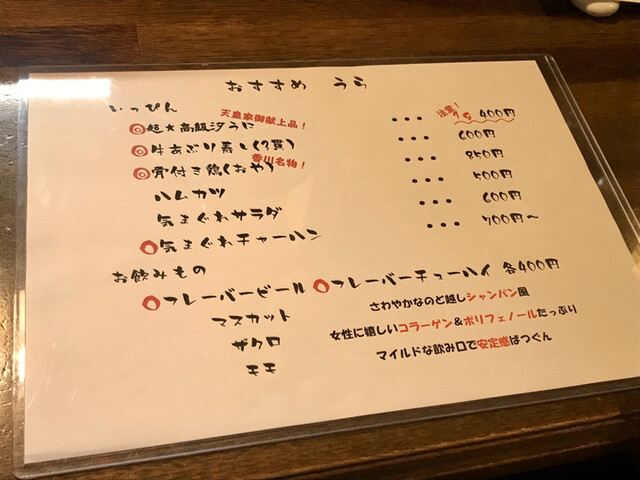 おすすめ うら
いっぴん
天皇家御献上品!
◎超★高級汐うに ・・・ 注意! 1g 400円
◎牛あぶり蒸し(3貫) ・・・ 600円
香川名物!
◎骨付き鶏(おや) ・・・ 850円
ハムカツ ・・・ 500円
気まぐれサラダ ・・・ 600円
◎気まぐれチャーハン ・・・ 700円～
お飲みもの
◎フレーバービール ◎フレーバーチューハイ 各400円
マスカット さわやかなのど越しシャンパン風
ザクロ 女性に嬉しいコラーゲン&ポリフェノールたっぷり
モモ マイルドな飲み口で安定感ばつぐん